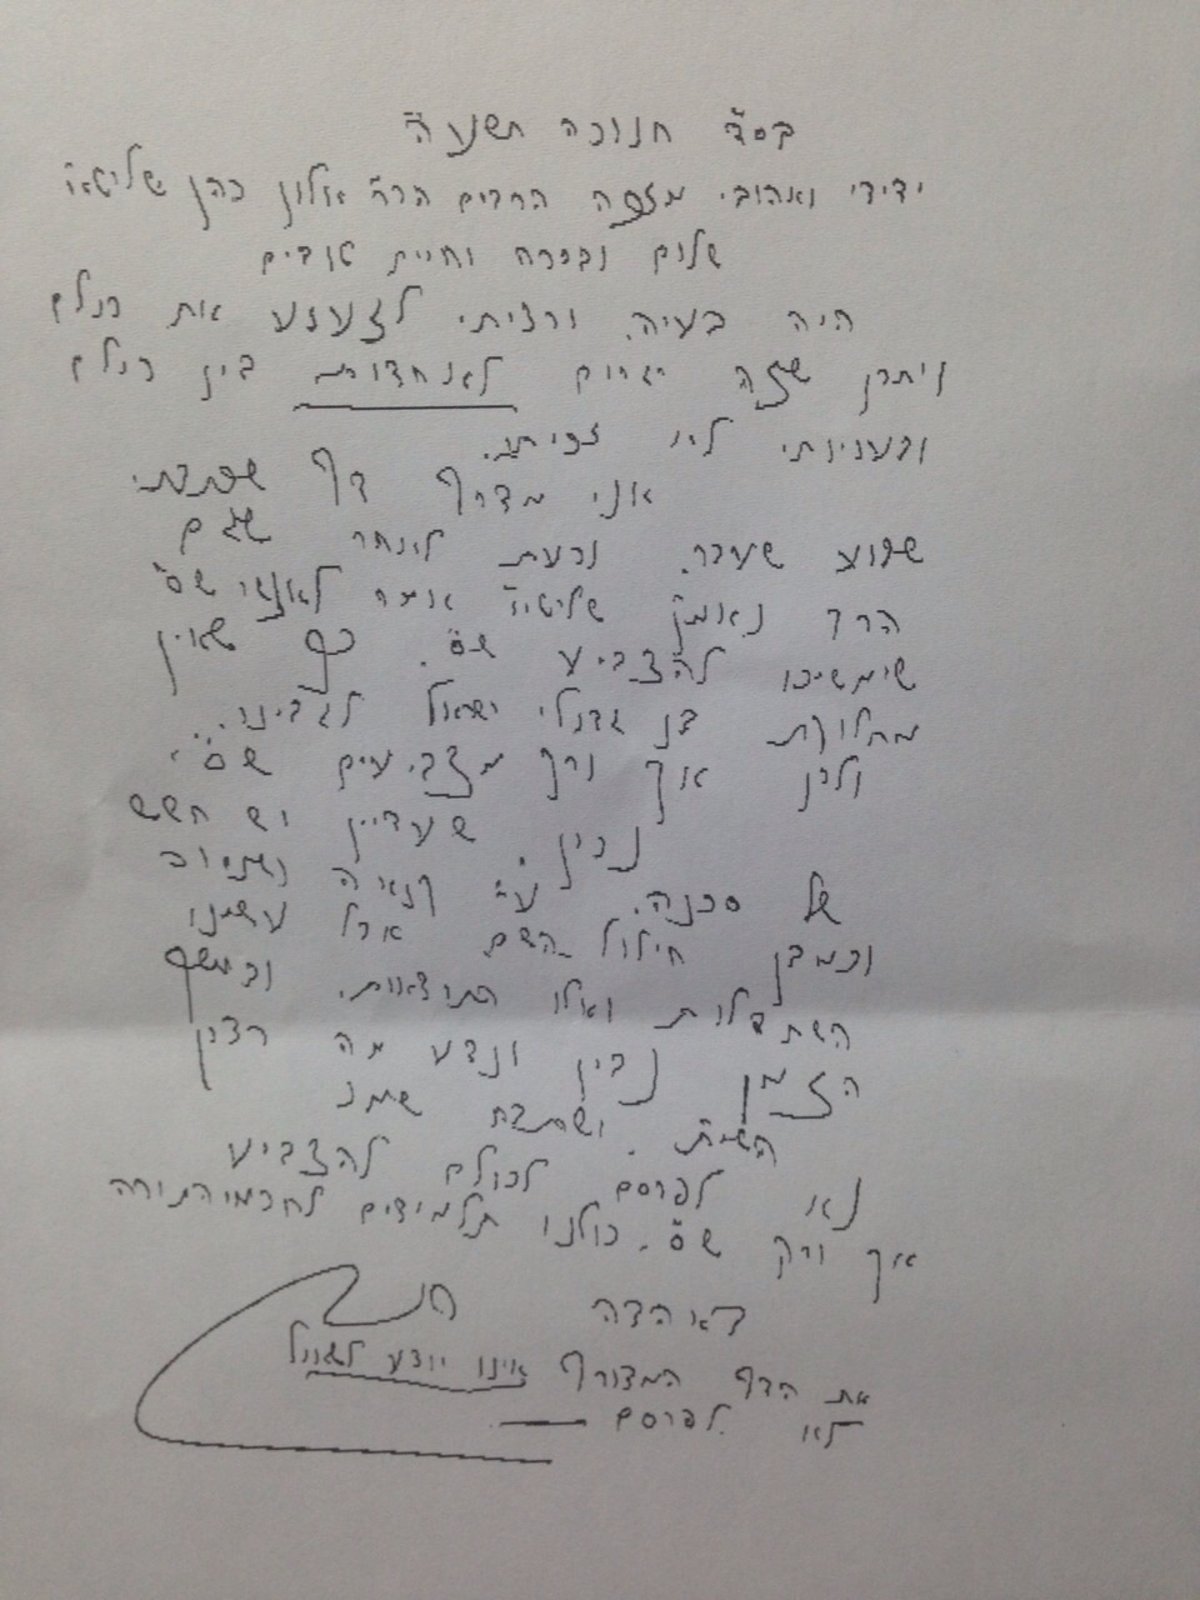 בס"ד חנוכה תשע"ה
ידידי ואהובי מזכה הרבים הרה"ג אלון כהן שליט"א
שלום וברכה וחיים טובים
היה בעיה. ורציתי לזעזע את כולם
ויתכן שזה יגרום לאחדות בין כולם
ובעניותי לא זכיתי.
אני מצרף דף שכתבתי
שבוע שעבר. וכעת לאחר שגם
הרב נאמן שליט"א אמר לאנשי ש"ס
שימשיכו להצביע ש"ס. כך שאין
מחלוקת בן גדולי ישראל לגבינו.
ולכן אך ורק מצביעים ש"ס
נכון. שעדיין יש חשש
של סכנה. ע"י קנאה
וכמבן חילול השם אבל עשינו
השתדלות ואלו התוצאות. ובמשך
הזמן נבין ונדע מה רצון
השי"ת.
נא לפרסם לכולם להצביע
אך ורק ש"ס. כולנו תלמידים לחכמי התורה
באהבה
את הדף המצורף אינו יודע לשואל
לא לפרסם